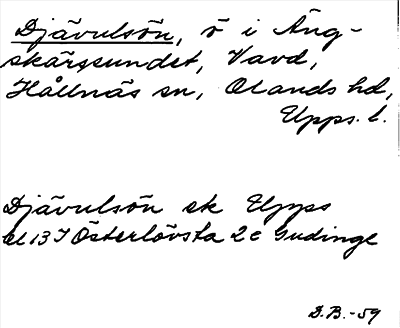 Djävulsön, ö i Äng-
skärssundet, Vavd,
Hållnäs sn, Olands hd,
Upps. l.
Djävulsön ek Upps
bl 13 I Österlövsta 2 c Gudinge
D.B. -59